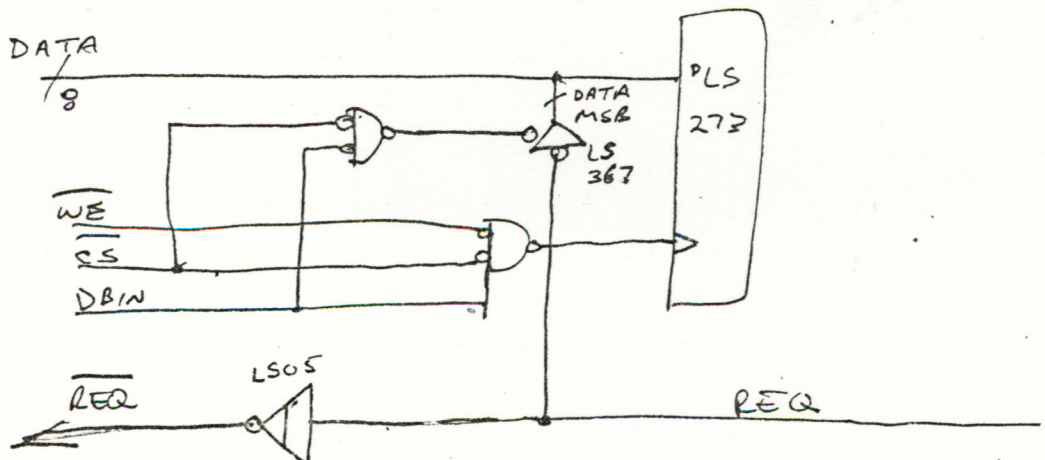 DATA
8
DATA
MSB
LS
367
D LS
273
W̅E̅
C̅S̅
DBIN
LS05
R̅E̅Q̅
REQ